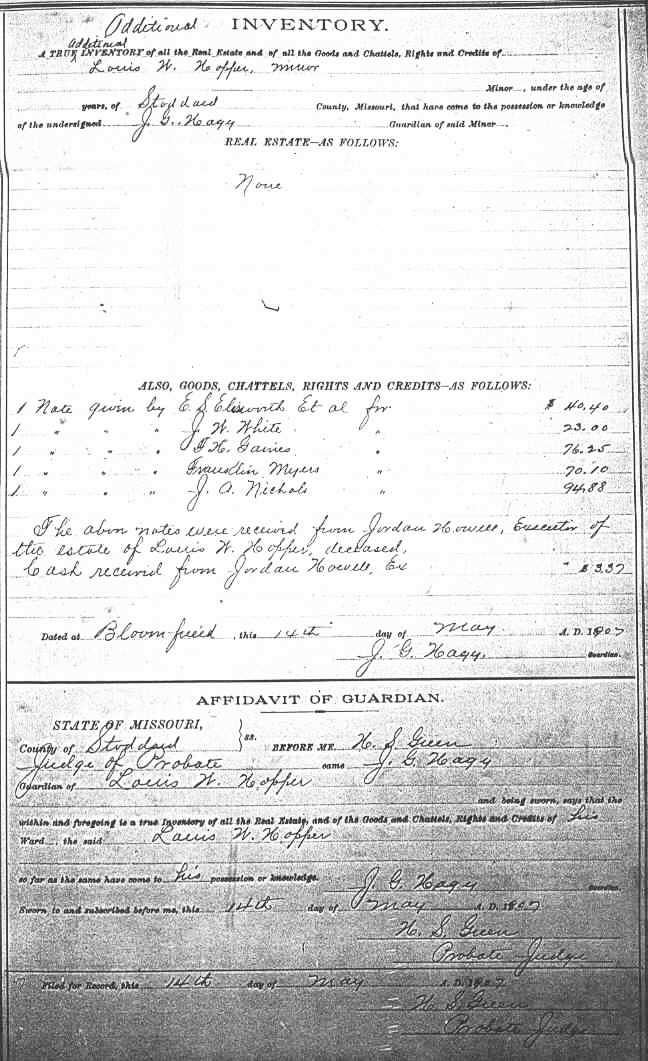 Additional INVENTORY.
Additional
A TRUE INVENTORY of all the Real Estate and of all the Goods and Chattels, Rights and Credits of
Louis W. Hopper, minor
Minor, under the age of
years, of Stoddard County, Missouri, that have come to the possession or knowledge
of the undersigned J. G. Hagy Guardian of said Minor.
REAL ESTATE—AS FOLLOWS:
None
ALSO, GOODS, CHATTELS, RIGHTS AND CREDITS—AS FOLLOWS:
1 Note given by E. S. Elsworth Et al for $ 40.40
1 " " " J. W. White " 23.00
1 " " " T. H. Gaines " 76.25
1 " " " Franklin Myers " 70.10
1 " " " J. A. Nichols " 94.88
The above notes were received from Jordan Howell, Executor of
the estate of Louis W. Hopper, deceased,
Cash received from Jordan Howell, Ex " $ 3.37
Dated at Bloomfield, this 14th day of May A. D. 1907
J. G. Hagy. Guardian.
AFFIDAVIT OF GUARDIAN.
STATE OF MISSOURI,
County of Stoddard } ss. BEFORE ME, H. S. Green
Judge of Probate came J. G. Hagy
Guardian of Louis W. Hopper
and being sworn, says that the
within and foregoing is a true Inventory of all the Real Estate, and of the Goods and Chattels, Rights and Credits of his
Ward, the said Louis W. Hopper
so far as the same have come to his possession or knowledge.
J. G. Hagy Guardian.
Sworn to and subscribed before me, this 14th day of May A. D. 1907
H. S. Green
Probate Judge
Filed for Record, this 14th day of May A. D. 1907
H. S. Green
Probate Judge